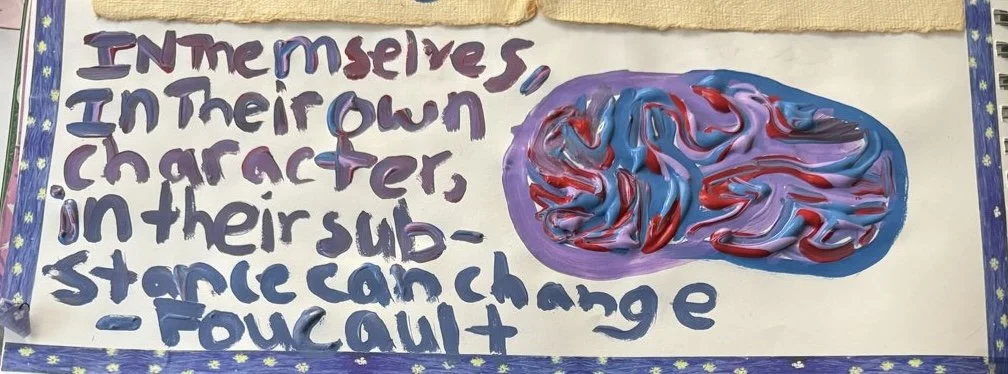 INThemselves,
In Their own
character,
in their sub-
stance can change
- Foucault